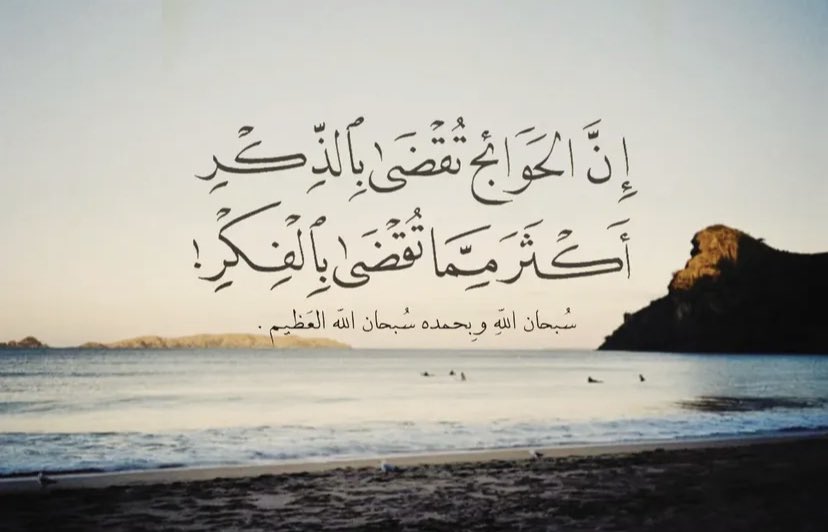 إِنَّ الْحَوَائِج تُقْضَىٰ بِٱلذِّكْرِ
أَكْثَرَ مِمَّا تُقْضَىٰ بِٱلْفِكْرِ!
سُبحان اللهِ وبِحمده سُبحان الله العَظيِم .